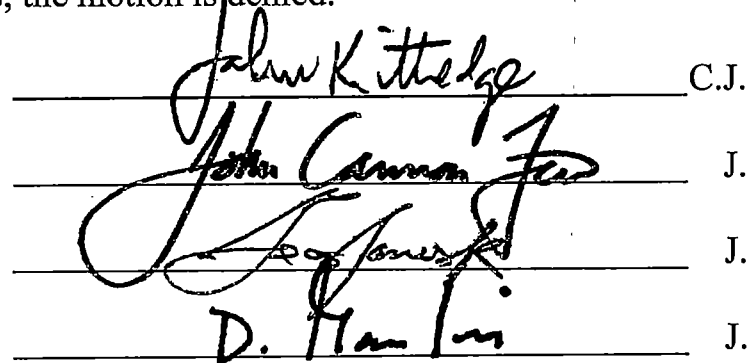 the motion is denied.
John Kittredge C.J.
John Cannon Few J.
J.
D. J.